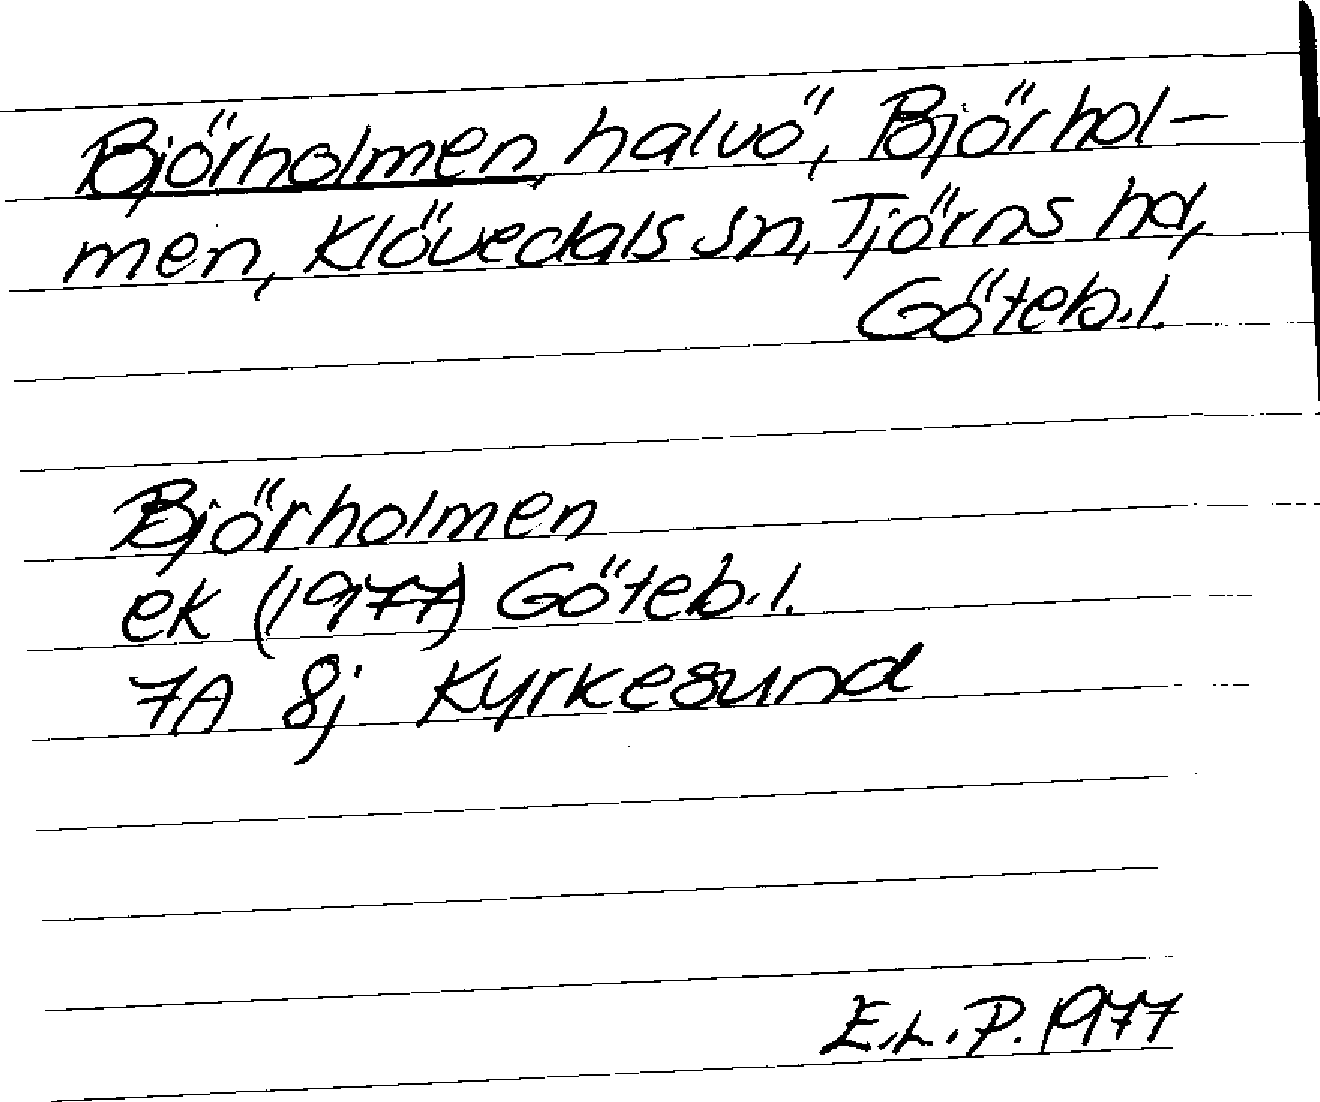 Björholmen, halvö, Björhol-
men, Klövedals sn, Tjörns hd,
Göteb.l.
Björholmen
ek (1977) Göteb.l.
7A 8j Kyrkesund
E.L.P. 1977